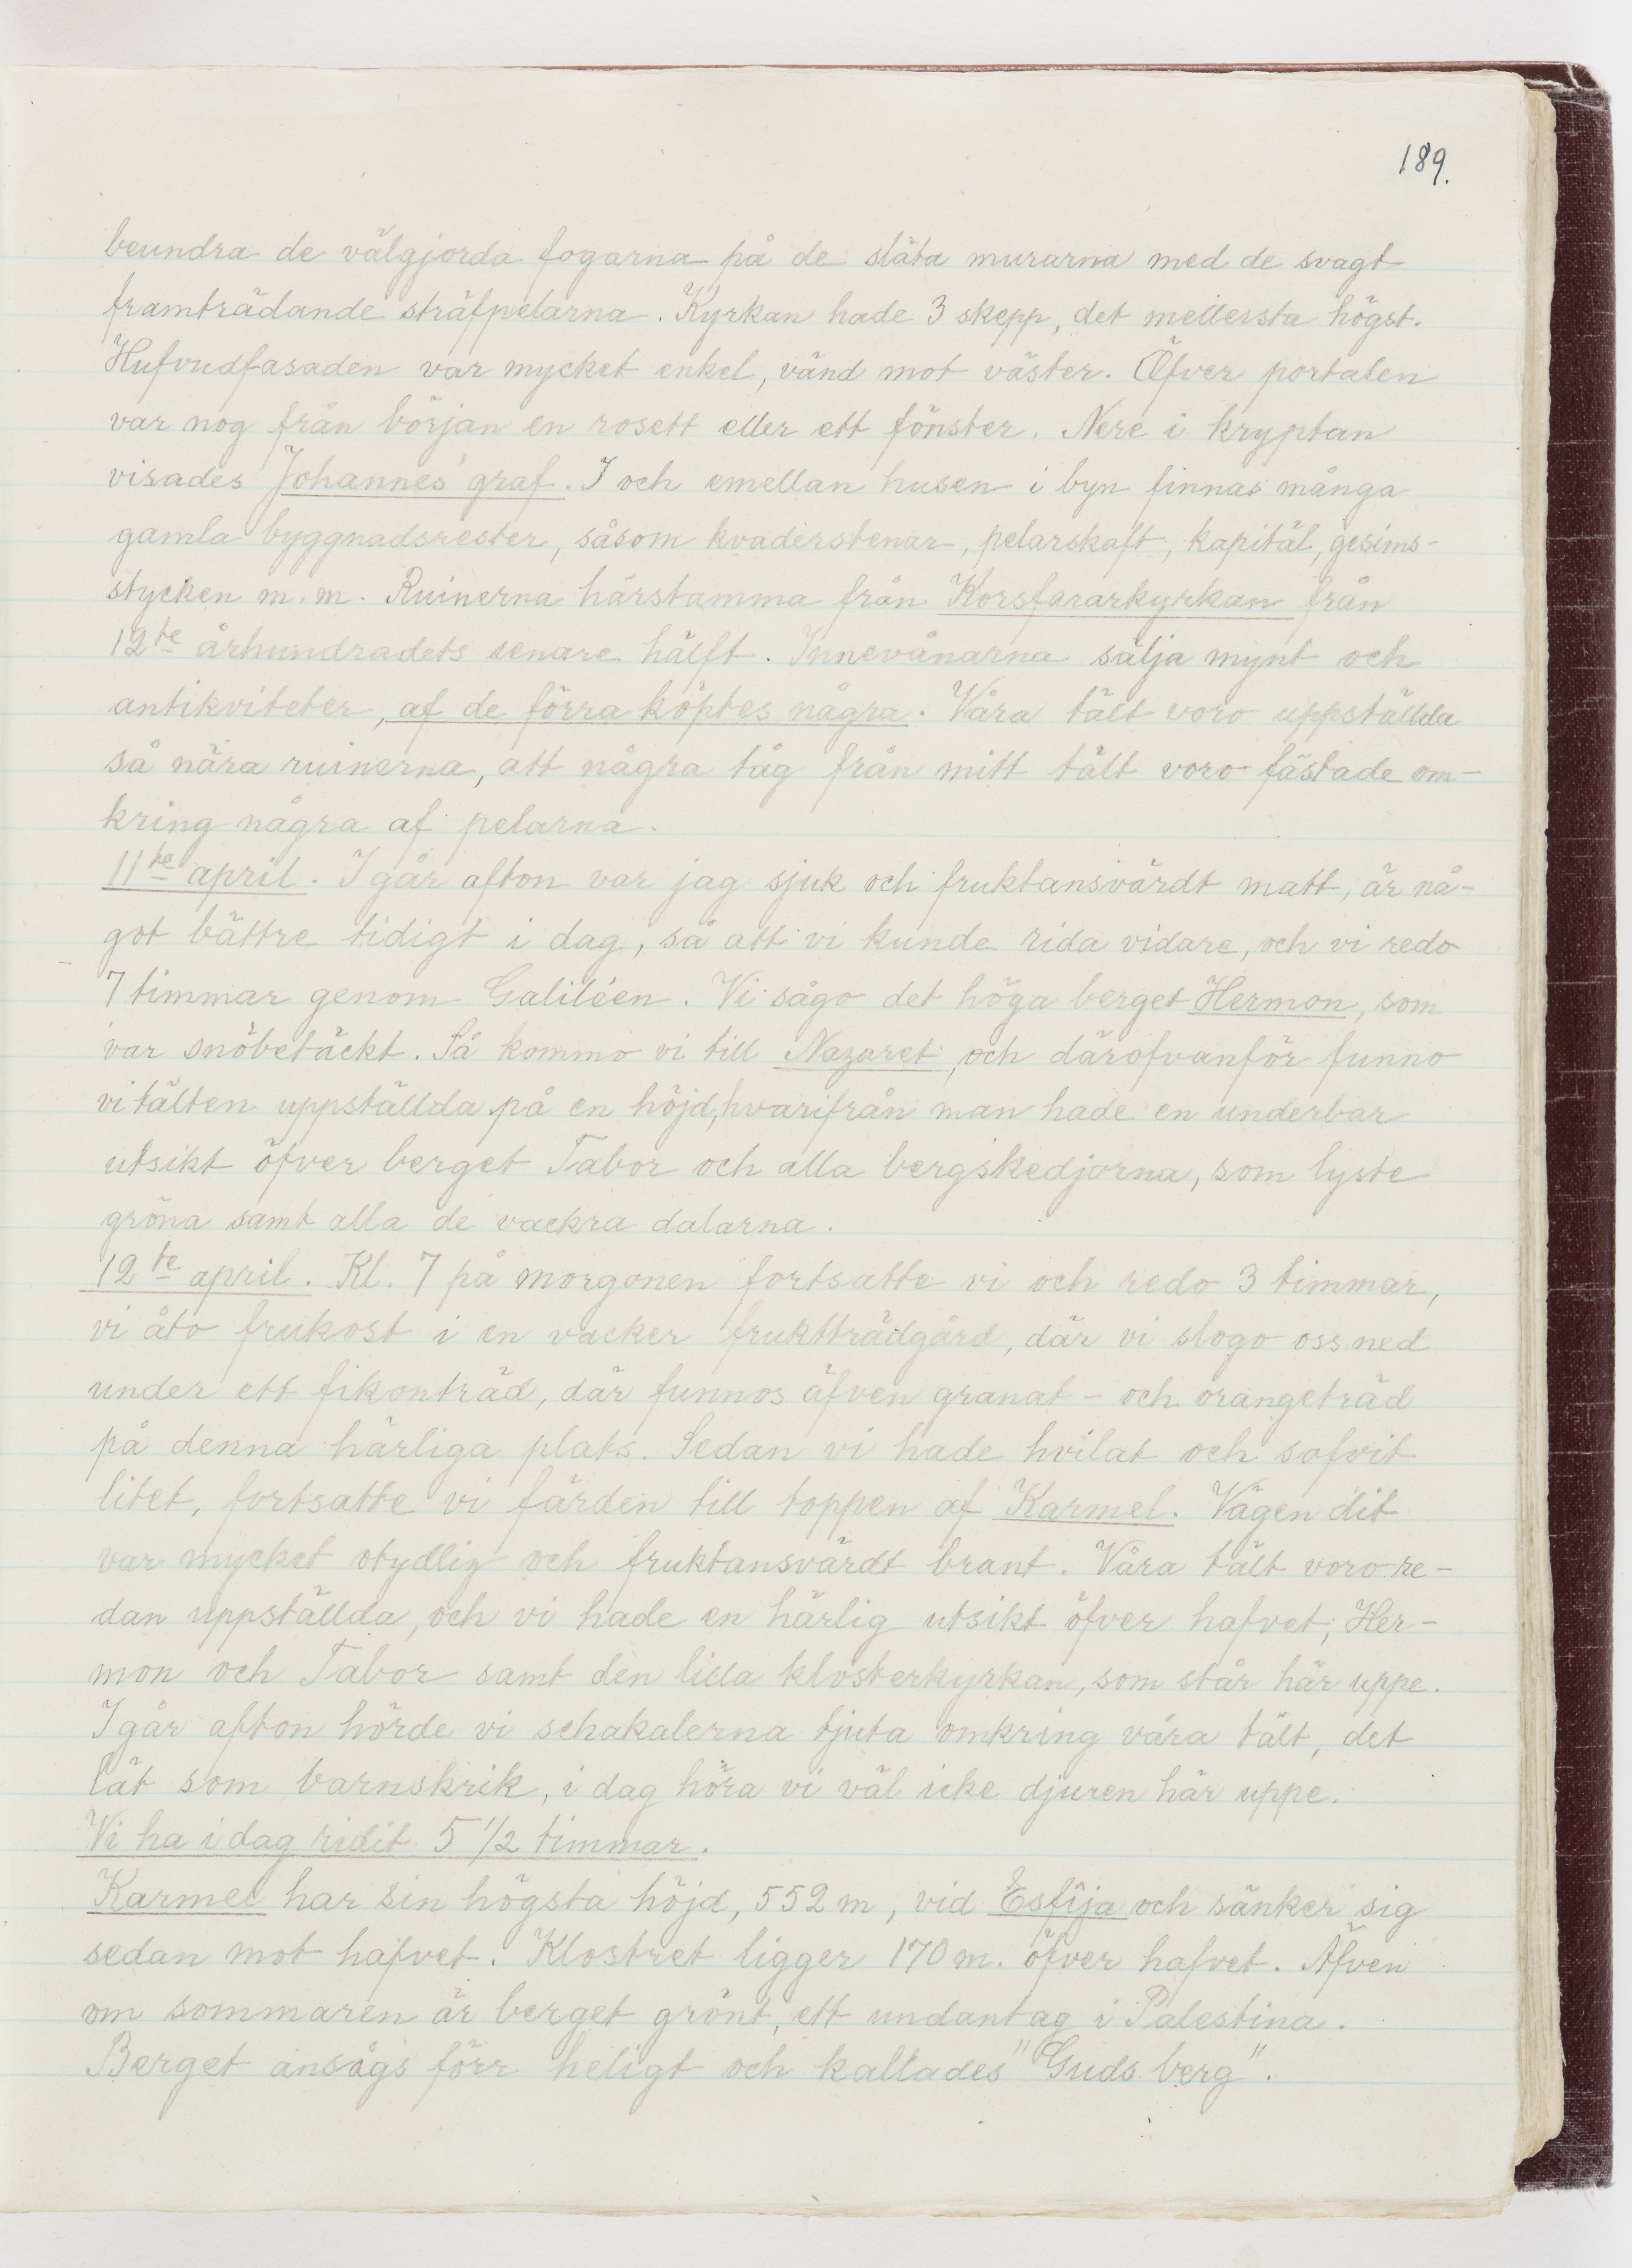 189.
beundra de välgjorda fogarna på de släta murarna med de svagt
framträdande sträfpelarna. Kyrkan hade 3 skepp, det mellersta högst.
Hufvudfasaden var mycket enkel, vänd mot väster. Öfver portalen
var nog från början en rosett eller ett fönster. Nere i kryptan
visades Johannes' graf. I och emellan husen i byn finnas många
gamla byggnadsrester, såsom kvaderstenar, pelarskaft, kapitäl, gesims-
stycken m.m. Ruinerna härstamma från Korsfararkyrkan från
12te århundradets senare hälft. Innevånarna sälja mynt och
antikviteter, af de förra köptes några. Våra tält voro uppställda
så nära ruinerna, att några tåg från mitt tält voro fästade om-
kring några af pelarna.
11te april. I går afton var jag sjuk och fruktansvärdt matt, är nå-
got bättre tidigt i dag, så att vi kunde rida vidare, och vi redo
7 timmar genom Galiléen. Vi sågo det höga berget Hermon, som
var snöbetäckt. Så kommo vi till Nazaret, och därofvanför funno
vi tälten uppställda på en höjd, hvarifrån man hade en underbar
utsikt öfver berget Tabor och alla bergskedjorna, som lyste
gröna samt alla de vackra dalarna.
12te april. Kl. 7 på morgonen fortsatte vi och redo 3 timmar,
vi åto frukost i en vacker fruktträdgård, där vi slogo oss ned
under ett fikonträd, där funnos äfven granat- och orangeträd
på denna härliga plats. Sedan vi hade hvilat och sofvit
litet, fortsatte vi färden till toppen af Karmel. Vägen dit
var mycket otydlig och fruktansvärdt brant. Våra tält voro re-
dan uppställda, och vi hade en härlig utsikt öfver hafvet, Her-
mon och Tabor samt den lilla klosterkyrkan, som står här uppe.
I går afton hörde vi schakalerna tjuta omkring våra tält, det
lät som barnskrik, i dag höra vi väl icke djuren här uppe.
Vi ha i dag ridit 5 1/2 timmar.
Karmel har sin högsta höjd, 552 m, vid Esfija och sänker sig
sedan mot hafvet. Klostret ligger 170 m. öfver hafvet. Äfven
om sommaren är berget grönt, ett undantag i Palestina.
Berget ansågs förr heligt och kallades "Guds berg".